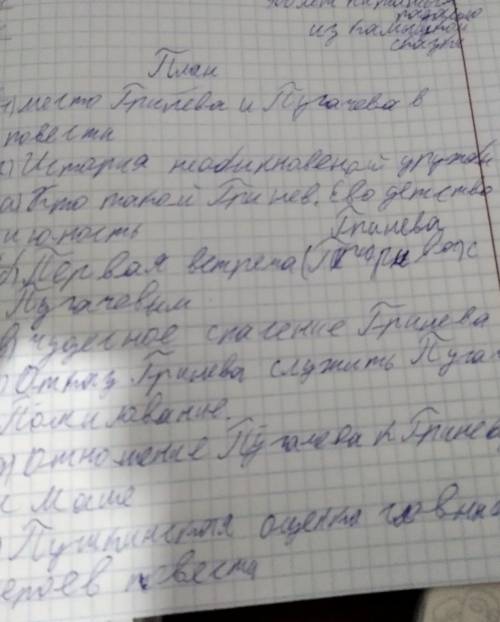 из
План
1) место Гринева и Пугачева в
повести
История необикновеной дружби
а) Кто такой Гринев. Ево детство
и юность Гринева
б) Первая встреча с
Пугачевим
в) чудесное спасение Гринева
Отказ Гринева служить Пугач
Помилование.
д) Отношение Пугачева к Гриневу
и Маше
Пушкинская оценка главных
героев повести